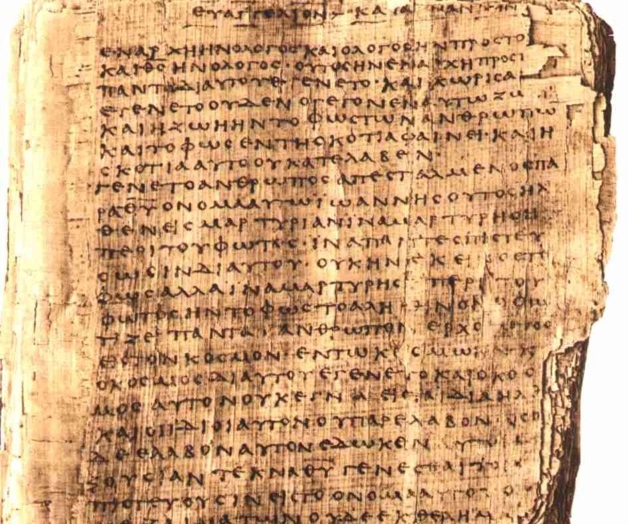 ΕΥΑΓΓΕΛΙΟΝ ΚΑΤΑ ΙΩΑΝΝΗΝ
ΕΝΑΡΧΗΗΝΟΛΟΓΟϹΚΑΙΟΛΟΓΟϹΗΝΠΡΟϹΤΟ
ΚΑΙΘϹΗΝΟΛΟΓΟϹ·ΟΥΤΟϹΗΝΕΝΑΡΧΗΠΡΟϹ
ΠΑΝΤΑΔΙΑΥΤΟΥΕΓΕΝΕΤΟ·ΚΑΙΧΩΡΙϹΑ
ΕΓΕΝΕΤΟΟΥΔΕΝΟΓΕΓΟΝΕΝΑΥΤΩΖΩ
ΚΑΙΗΖΩΗΗΝΤΟΦΩϹΤΩΝΑΝΘΡΩΠΩ
ΚΑΙΤΟΦΩϹΕΝΤΗϹΚΟΤΙΑΦΑΙΝΕΙ·ΚΑΙΗ
ϹΚΟΤΙΑΑΥΤΟΟΥΚΑΤΕΛΑΒΕΝ·
ΓΕΝΕΤΟΑΝΘΡΩΠΟϹΑΠΕϹΤΑΛΜΕΝΟϹΠΑ
ΡΑΘΥΟΝΟΜΑΑΥΤΩΙΩΑΝΝΗϹΟΥΤΟϹΗΛ
ΘΕΝΕΙϹΜΑΡΤΥΡΙΑΝΙΝΑΜΑΡΤΥΡΗϹΗ
ΠΕΡΙΤΟΥΦΩΤΟϹ·ΙΝΑΠΑΝΤΕϹΠΙϹΤΕΥ
ϹΩϹΙΝΔΙΑΥΤΟΥ·ΟΥΚΗΝΕΚΕΙΝΟϹΤ
ΦΩϹΑΛΛΑΙΝΑΜΑΡΤΥΡΗϹΗ ΠΕΡΙΤΟΥ
ΦΩΤΟϹΗΝΤΟΦΩϹΤΟΑΛΗΘΙΝΟΝΟΦΩ
ΤΙΖΕΙΠΑΝΤΑΑΝΘΡΩΠΟΝΕΡΧΟΜΕΝΟΝ
ΕΙϹΤΟΝΚΟϹΜΟΝ·ΕΝΤΩΚΟϹΜΩΗΝΚ
ΟΚΟϹΜΟϹΔΙΑΥΤΟΥΕΓΕΝΕΤΟΚΑΙΟΚΟϹ
ΜΟϹΑΥΤΟΝΟΥΚΕΓΝΩΕΙϹΤΑΙΔΙΑΗΛ
ΚΑΙΟΙΙΔΙΟΙΑΥΤΟΝΟΥΠΑΡΕΛΑΒΟΝ ΟϹΟΙ
ΔΕΕΛΑΒΟΝΑΥΤΟΝΕΔΩΚΕΝΑΥΤΟΙϹ
ΞΟΥϹΙΑΝΤΕΚΝΑΘΥΓΕΝΕϹΘΑΙΤΟΙϹ
ΠΙϹΤΕΥΟΥϹΙΝΕΙϹΤΟΟΝΟΜΑΑΥΤΟΥΟ